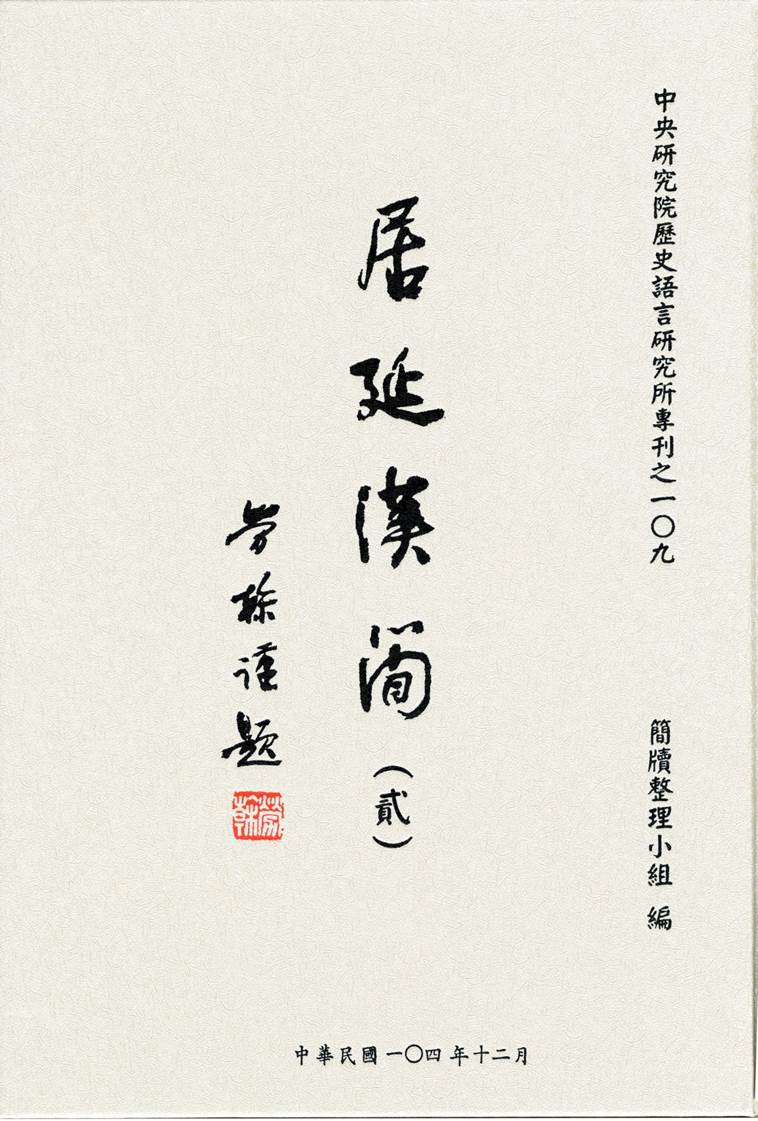 中央研究院歷史語言研究所專刊之一〇九
簡牘整理小組 編
居延漢簡（貳）
勞榦謹題
勞榦
中華民國一〇四年十二月